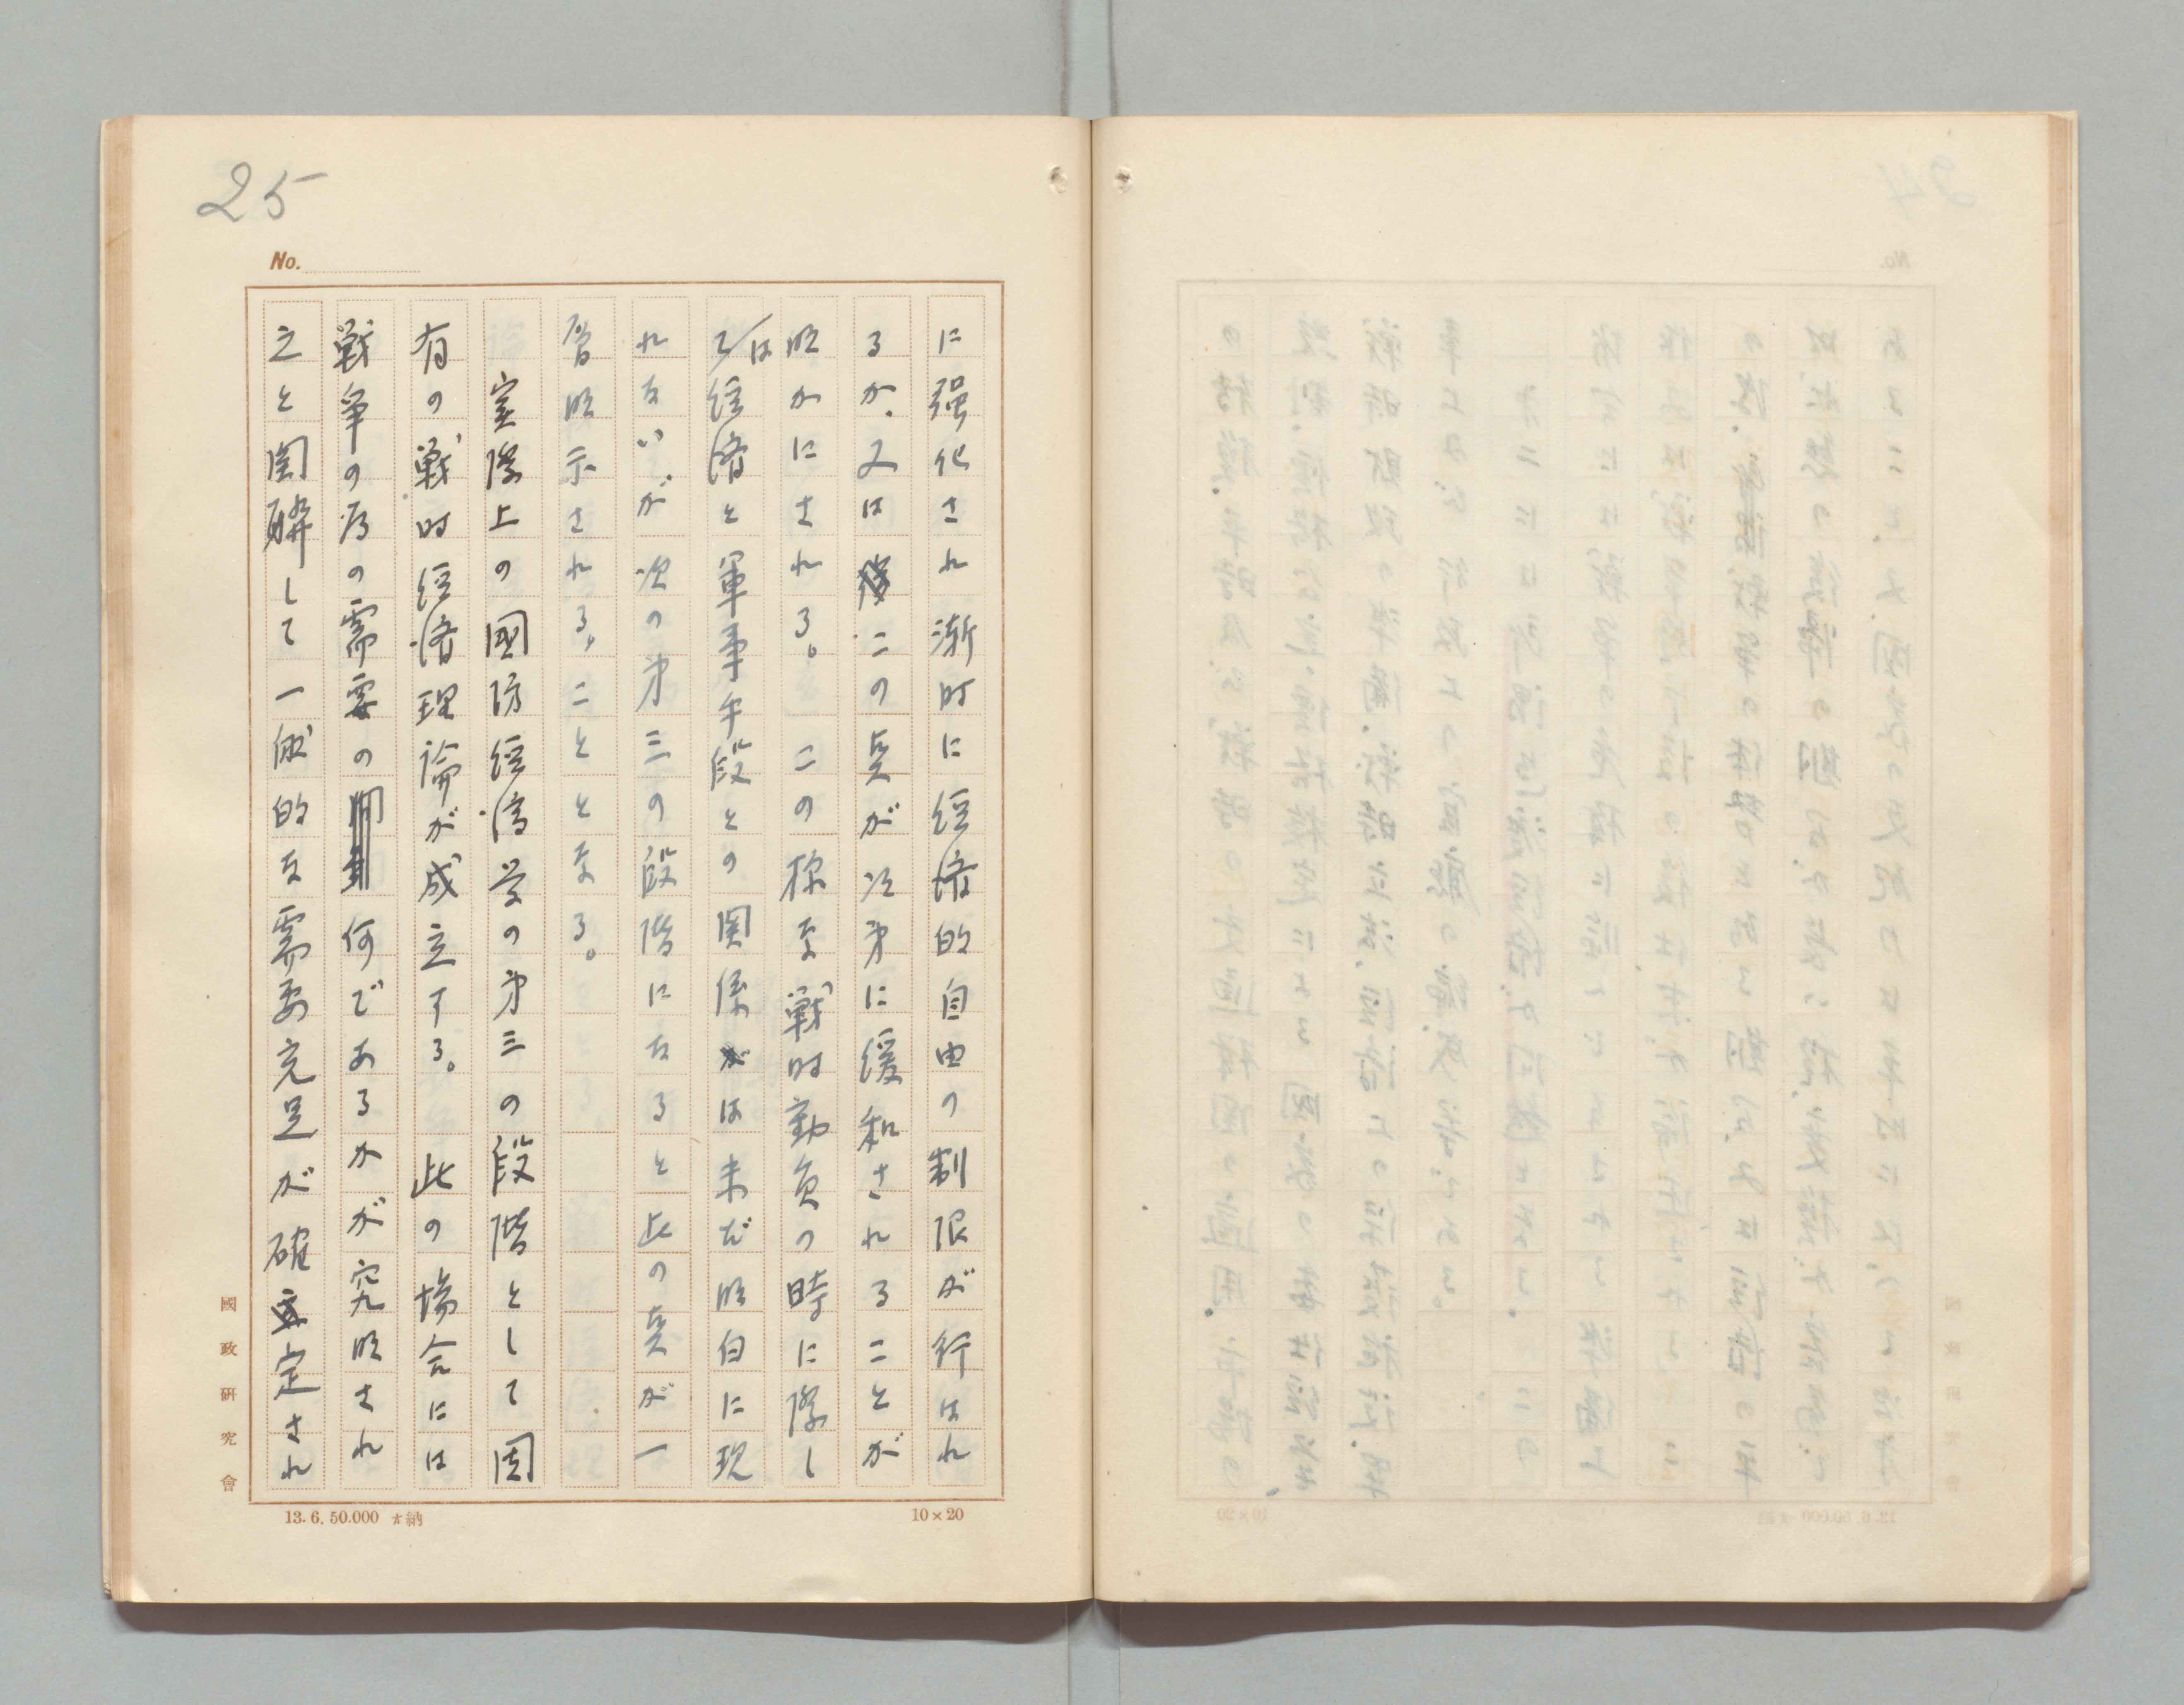 25
No.
に強化され漸時に経済的自由の制限が行はれ
るか、又はこの点が次第に緩和されることが
明かにされる。この様な戦時動員の時に際し
ては経済と軍事手段との関係は未だ明白に現
れないが、次の第三の段階になると此の点が一
層明示されることとなる。
実際上の國防経済学の第三の段階として固
有の戦時経済理論が成立する。此の場合には
戦争の為の需要の何であるかが究明され
之と関聯して一般的な需要充足が確定され
國政研究會
13. 6. 50.000 納
10×20